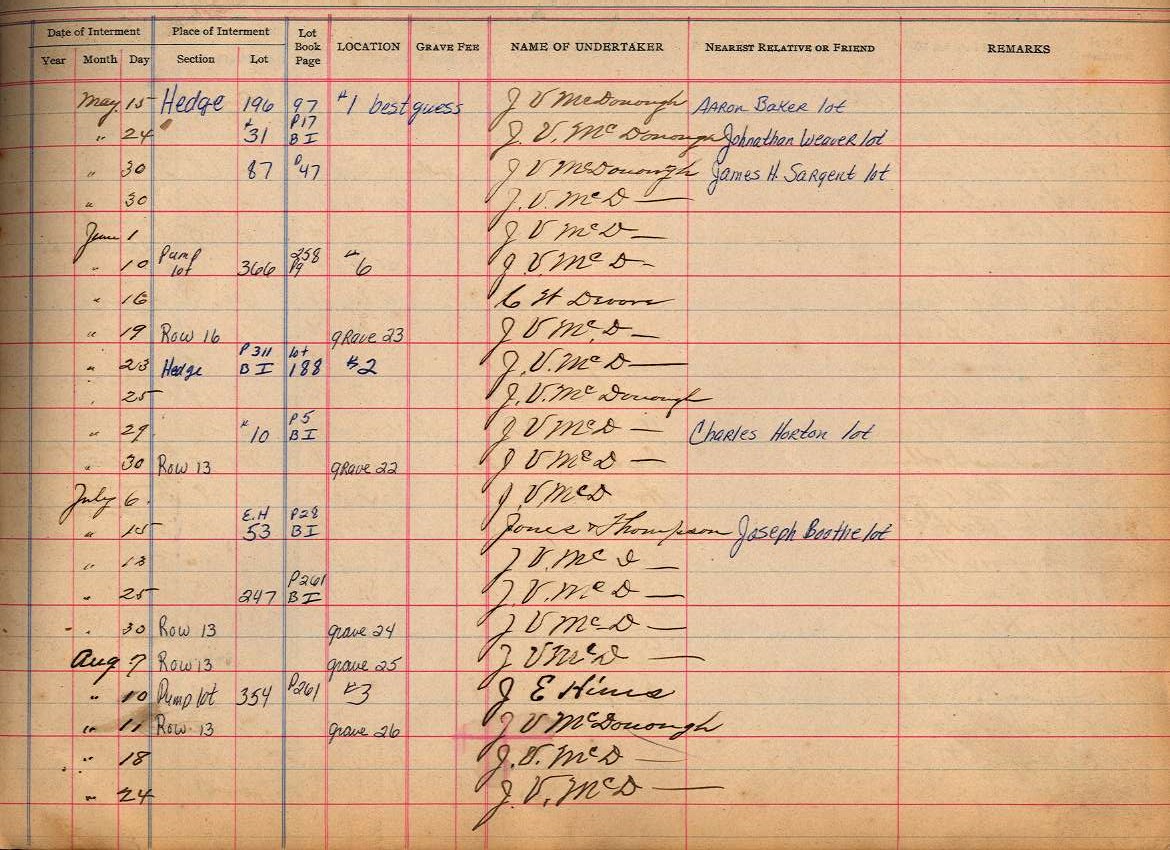 Date of Interment Place of Interment Lot Book Page LOCATION GRAVE FEE NAME OF UNDERTAKER NEAREST RELATIVE OR FRIEND REMARKS
Year Month Day Section Lot
May 15 Hedge 196 97 #1 best guess J V McDonough AARON BAKER lot
" 24 #31 P17 BI J. V. McDonough Johnathan Weaver lot
" 30 87 P47 J V McDonough James H. Sargent lot
" 30 J. V. McD —
June 1 J V McD —
" 10 Pump lot 366 258 Pg #6 J. V McD -
" 16 C H Devore
" 19 Row 16 grave 23 J V McD —
" 23 Hedge P311 BI lot 188 #2 J. V. McD —
" 25 J. V. McDonough
" 29 #10 P5 BI J V McD — Charles Horton lot
" 30 Row 13 grave 22 J V McD —
July 6 J. V McD
" 15 E.H 53 P28 BI Jones & Thompson Joseph Boothe lot
" 13 J V Mc D —
" 25 247 P261 BI J. V. McD —
" 30 Row 13 grave 24 J V McD —
Aug 7 Row 13 grave 25 J V McD —
" 10 Pump lot 354 P261 #3 J E Hims
" 11 Row 13 grave 26 J V McDonough
" 18 J. V. McD —
" 24 J. V. McD —